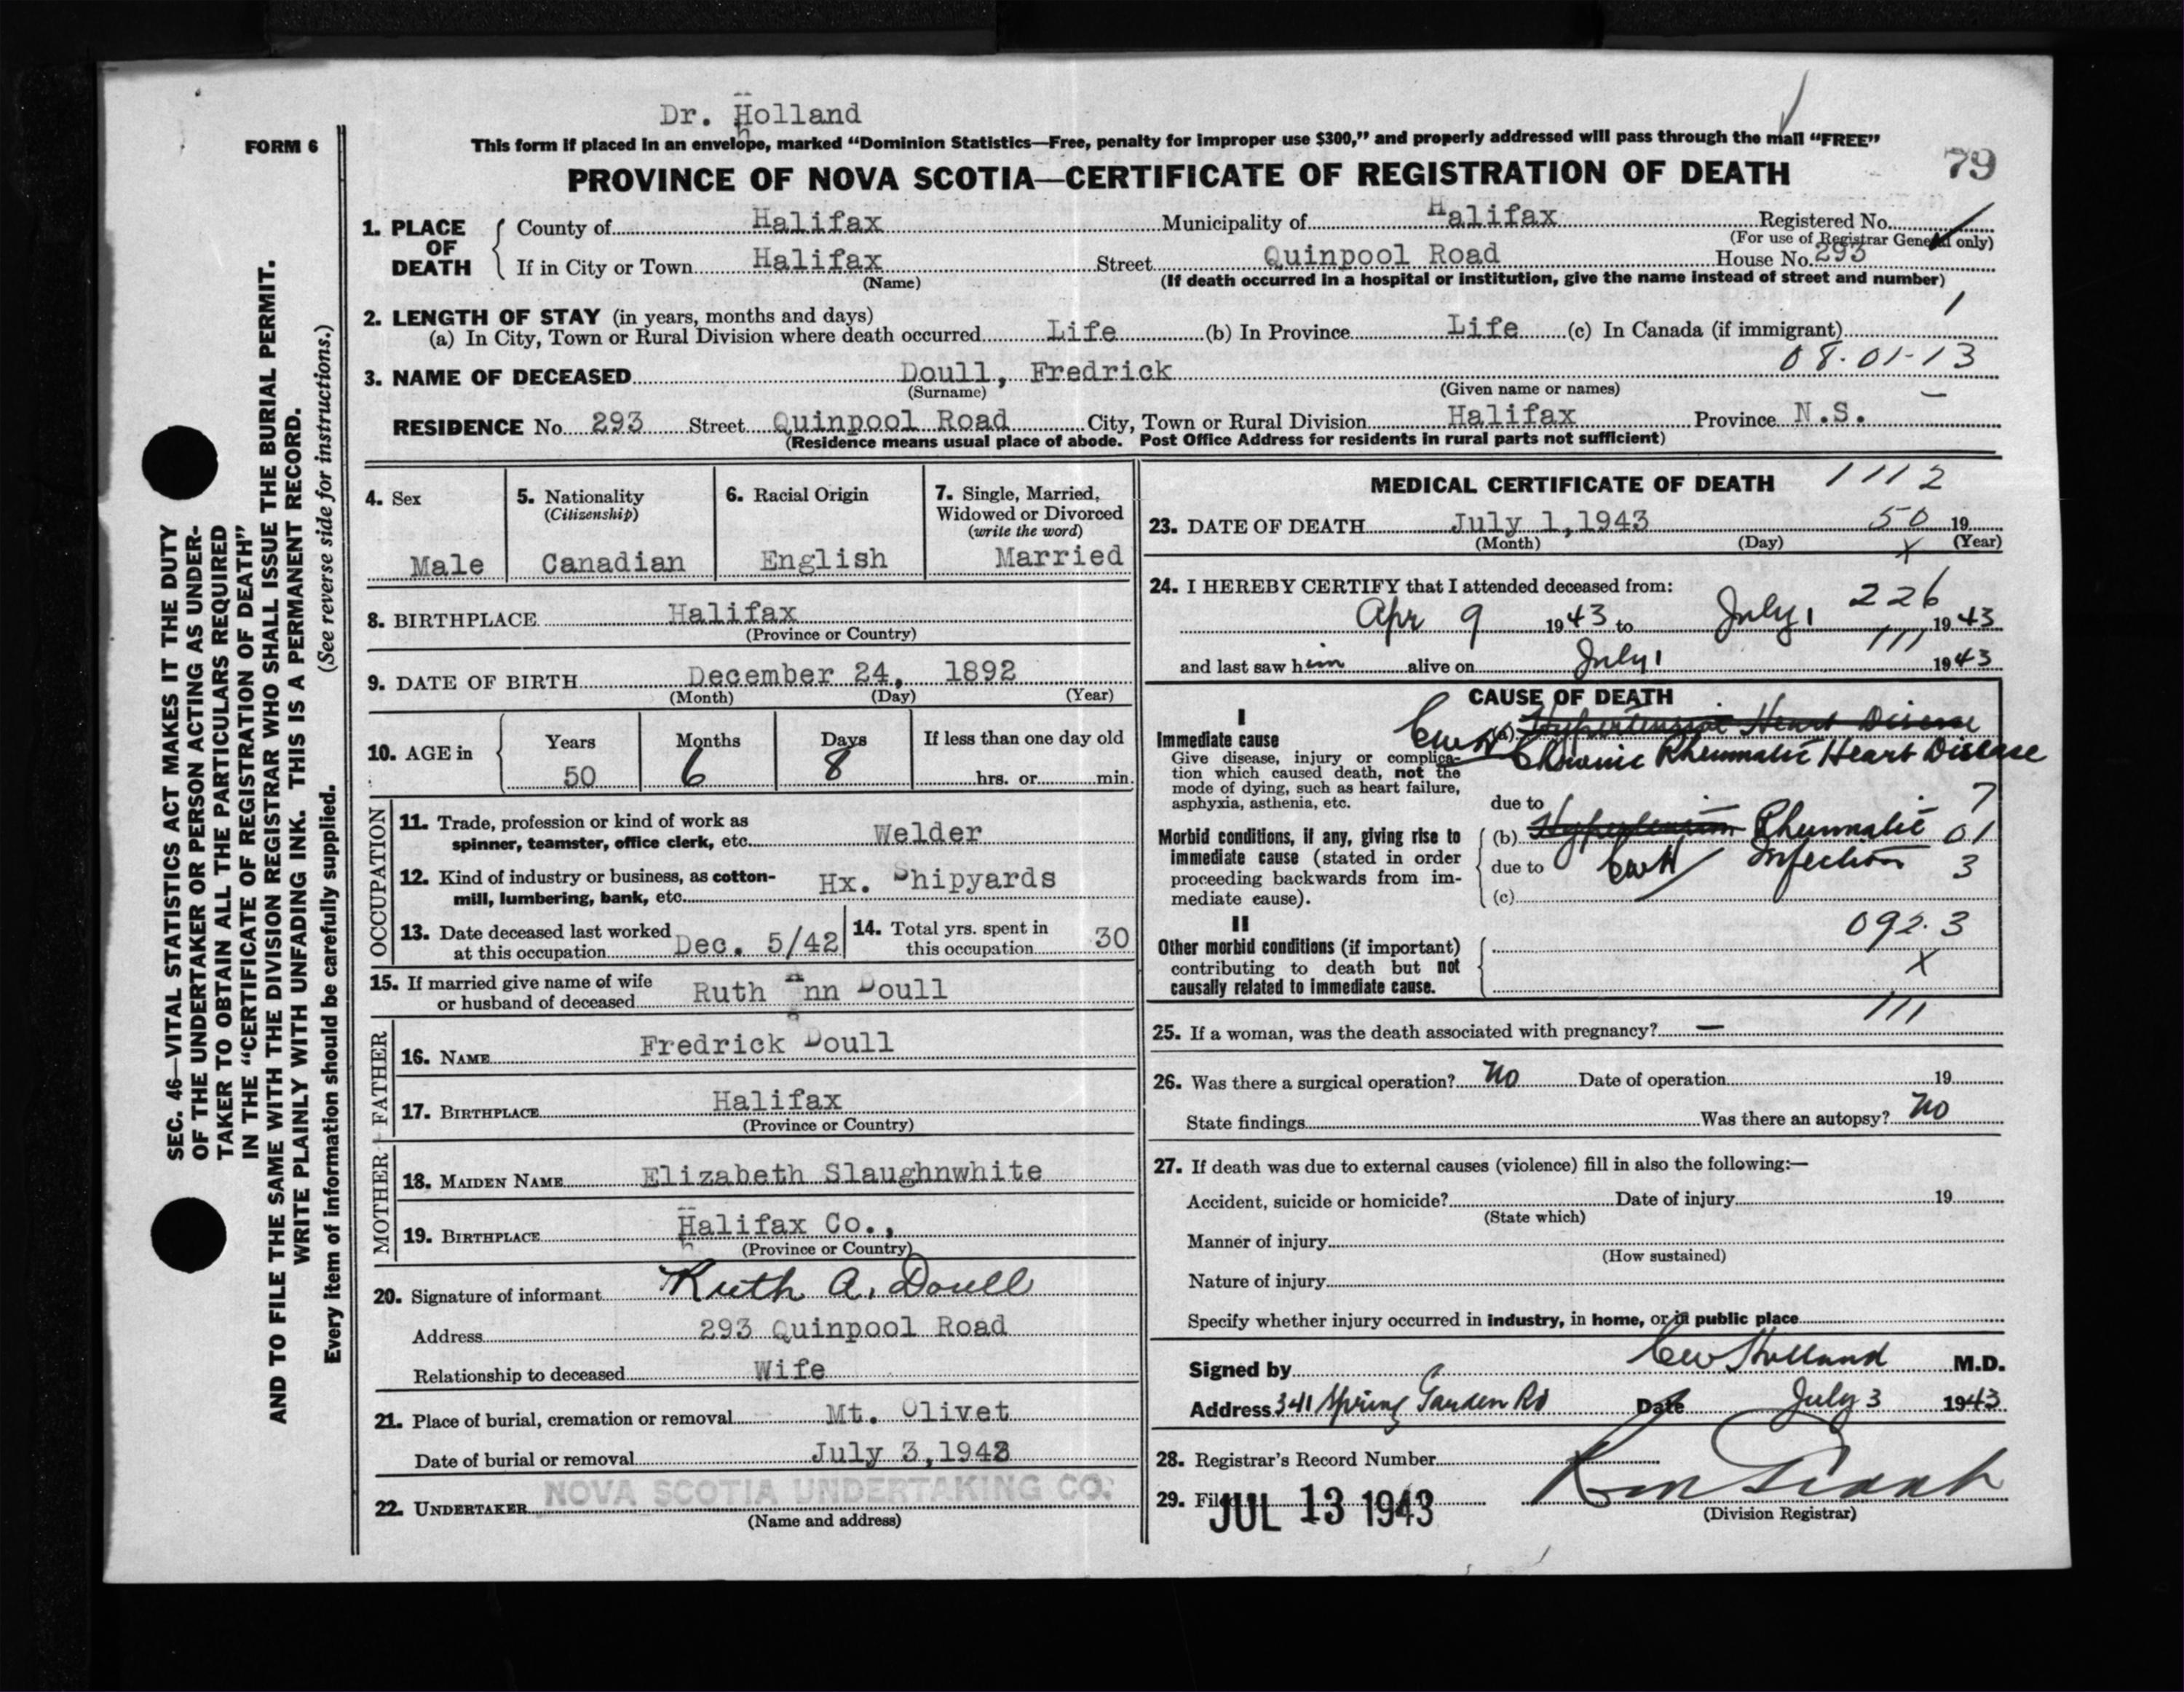 Dr. Holland
FORM 6
This form if placed in an envelope, marked "Dominion Statistics—Free, penalty for improper use $300," and properly addressed will pass through the mail "FREE"
79
PROVINCE OF NOVA SCOTIA—CERTIFICATE OF REGISTRATION OF DEATH
1. PLACE OF DEATH
County of Halifax Municipality of Halifax Registered No.
(For use of Registrar General only)
If in City or Town Halifax Street Quinpool Road House No. 293
(Name) (If death occurred in a hospital or institution, give the name instead of street and number)
2. LENGTH OF STAY (in years, months and days)
(a) In City, Town or Rural Division where death occurred Life (b) In Province Life (c) In Canada (if immigrant)
1
08-01-13
3. NAME OF DECEASED Doull, Fredrick
(Surname) (Given name or names)
RESIDENCE No. 293 Street Quinpool Road City, Town or Rural Division Halifax Province N.S.
(Residence means usual place of abode. Post Office Address for residents in rural parts not sufficient)
4. Sex
Male
5. Nationality
(Citizenship)
Canadian
6. Racial Origin
English
7. Single, Married,
Widowed or Divorced
(write the word)
Married
8. BIRTHPLACE Halifax
(Province or Country)
9. DATE OF BIRTH December 24, 1892
(Month) (Day) (Year)
10. AGE in Years Months Days If less than one day old
50 6 8 hrs. or min.
OCCUPATION
11. Trade, profession or kind of work as
spinner, teamster, office clerk, etc. Welder
12. Kind of industry or business, as cotton-
mill, lumbering, bank, etc. Hx. Shipyards
13. Date deceased last worked
at this occupation Dec. 5/42
14. Total yrs. spent in
this occupation 30
15. If married give name of wife
or husband of deceased Ruth Ann Doull
FATHER
16. NAME Fredrick Doull
17. BIRTHPLACE Halifax
(Province or Country)
MOTHER
18. MAIDEN NAME Elizabeth Slaughnwhite
19. BIRTHPLACE Halifax Co.,
(Province or Country)
20. Signature of informant Ruth A. Doull
Address 293 Quinpool Road
Relationship to deceased Wife
21. Place of burial, cremation or removal Mt. Olivet
Date of burial or removal July 3, 1943
22. UNDERTAKER NOVA SCOTIA UNDERTAKING CO.
(Name and address)
MEDICAL CERTIFICATE OF DEATH 1112
23. DATE OF DEATH July 1, 1943 50 19
(Month) (Day) X (Year)
24. I HEREBY CERTIFY that I attended deceased from:
226
Apr 9 1943 to July 1 1943
111
and last saw him alive on July 1 1943
CAUSE OF DEATH
I
Immediate cause
Give disease, injury or complica-
tion which caused death, not the
mode of dying, such as heart failure,
asphyxia, asthenia, etc.
(a) Hypertensive Heart Disease
CWH Chronic Rheumatic Heart Disease
due to 7
Morbid conditions, if any, giving rise to
immediate cause (stated in order
proceeding backwards from im-
mediate cause).
(b) Hypertension Rheumatic 01
due to CWH Infection 3
(c)
II
Other morbid conditions (if important)
contributing to death but not
causally related to immediate cause.
092.3
X
111
25. If a woman, was the death associated with pregnancy? —
26. Was there a surgical operation? No Date of operation 19
State findings Was there an autopsy? No
27. If death was due to external causes (violence) fill in also the following:—
Accident, suicide or homicide? Date of injury 19
(State which)
Manner of injury
(How sustained)
Nature of injury
Specify whether injury occurred in industry, in home, or in public place
Signed by CW Holland M.D.
Address 341 Spring Garden Rd Date July 3 1943
28. Registrar's Record Number
29. Filed JUL 13 1943
(Division Registrar)
SEC. 46—VITAL STATISTICS ACT MAKES IT THE DUTY
OF THE UNDERTAKER OR PERSON ACTING AS UNDER-
TAKER TO OBTAIN ALL THE PARTICULARS REQUIRED
IN THE "CERTIFICATE OF REGISTRATION OF DEATH"
AND TO FILE THE SAME WITH THE DIVISION REGISTRAR WHO SHALL ISSUE THE BURIAL PERMIT.
WRITE PLAINLY WITH UNFADING INK. THIS IS A PERMANENT RECORD.
Every item of information should be carefully supplied. (See reverse side for instructions.)